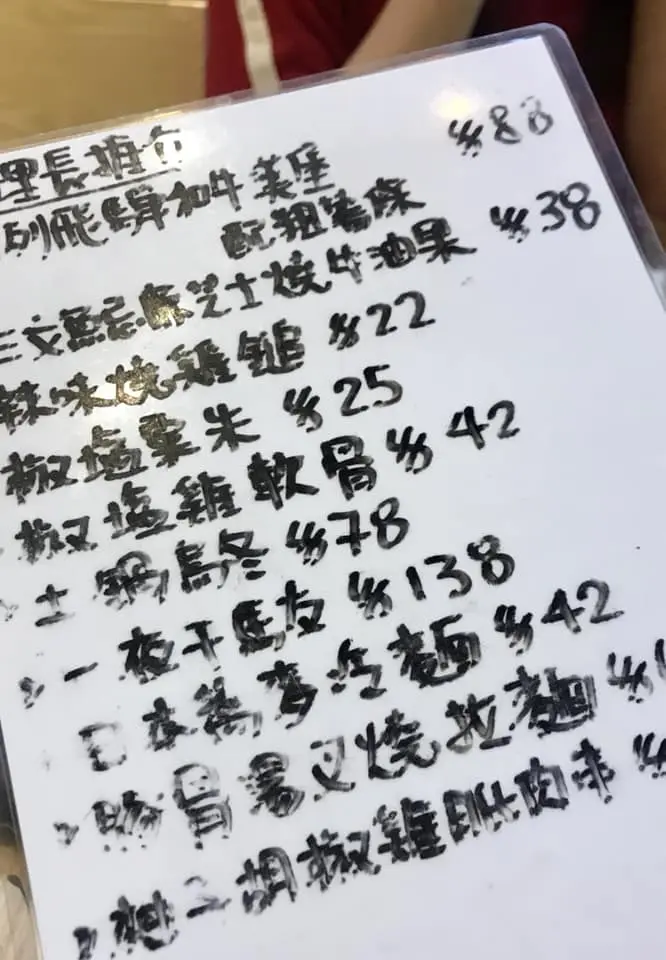 理長推介
和牛美堡 $88
配粗薯條
三文魚忌廉芝士燒牛油果 $38
辣味燒雞鎚 $22
椒塩粟米 $25
椒塩雞軟骨 $42
土鍋烏冬 $78
一夜干馬友 $138
日本蕎麥冷麵 $42
豚骨叉燒拉麵 $
胡椒雞肉串 $